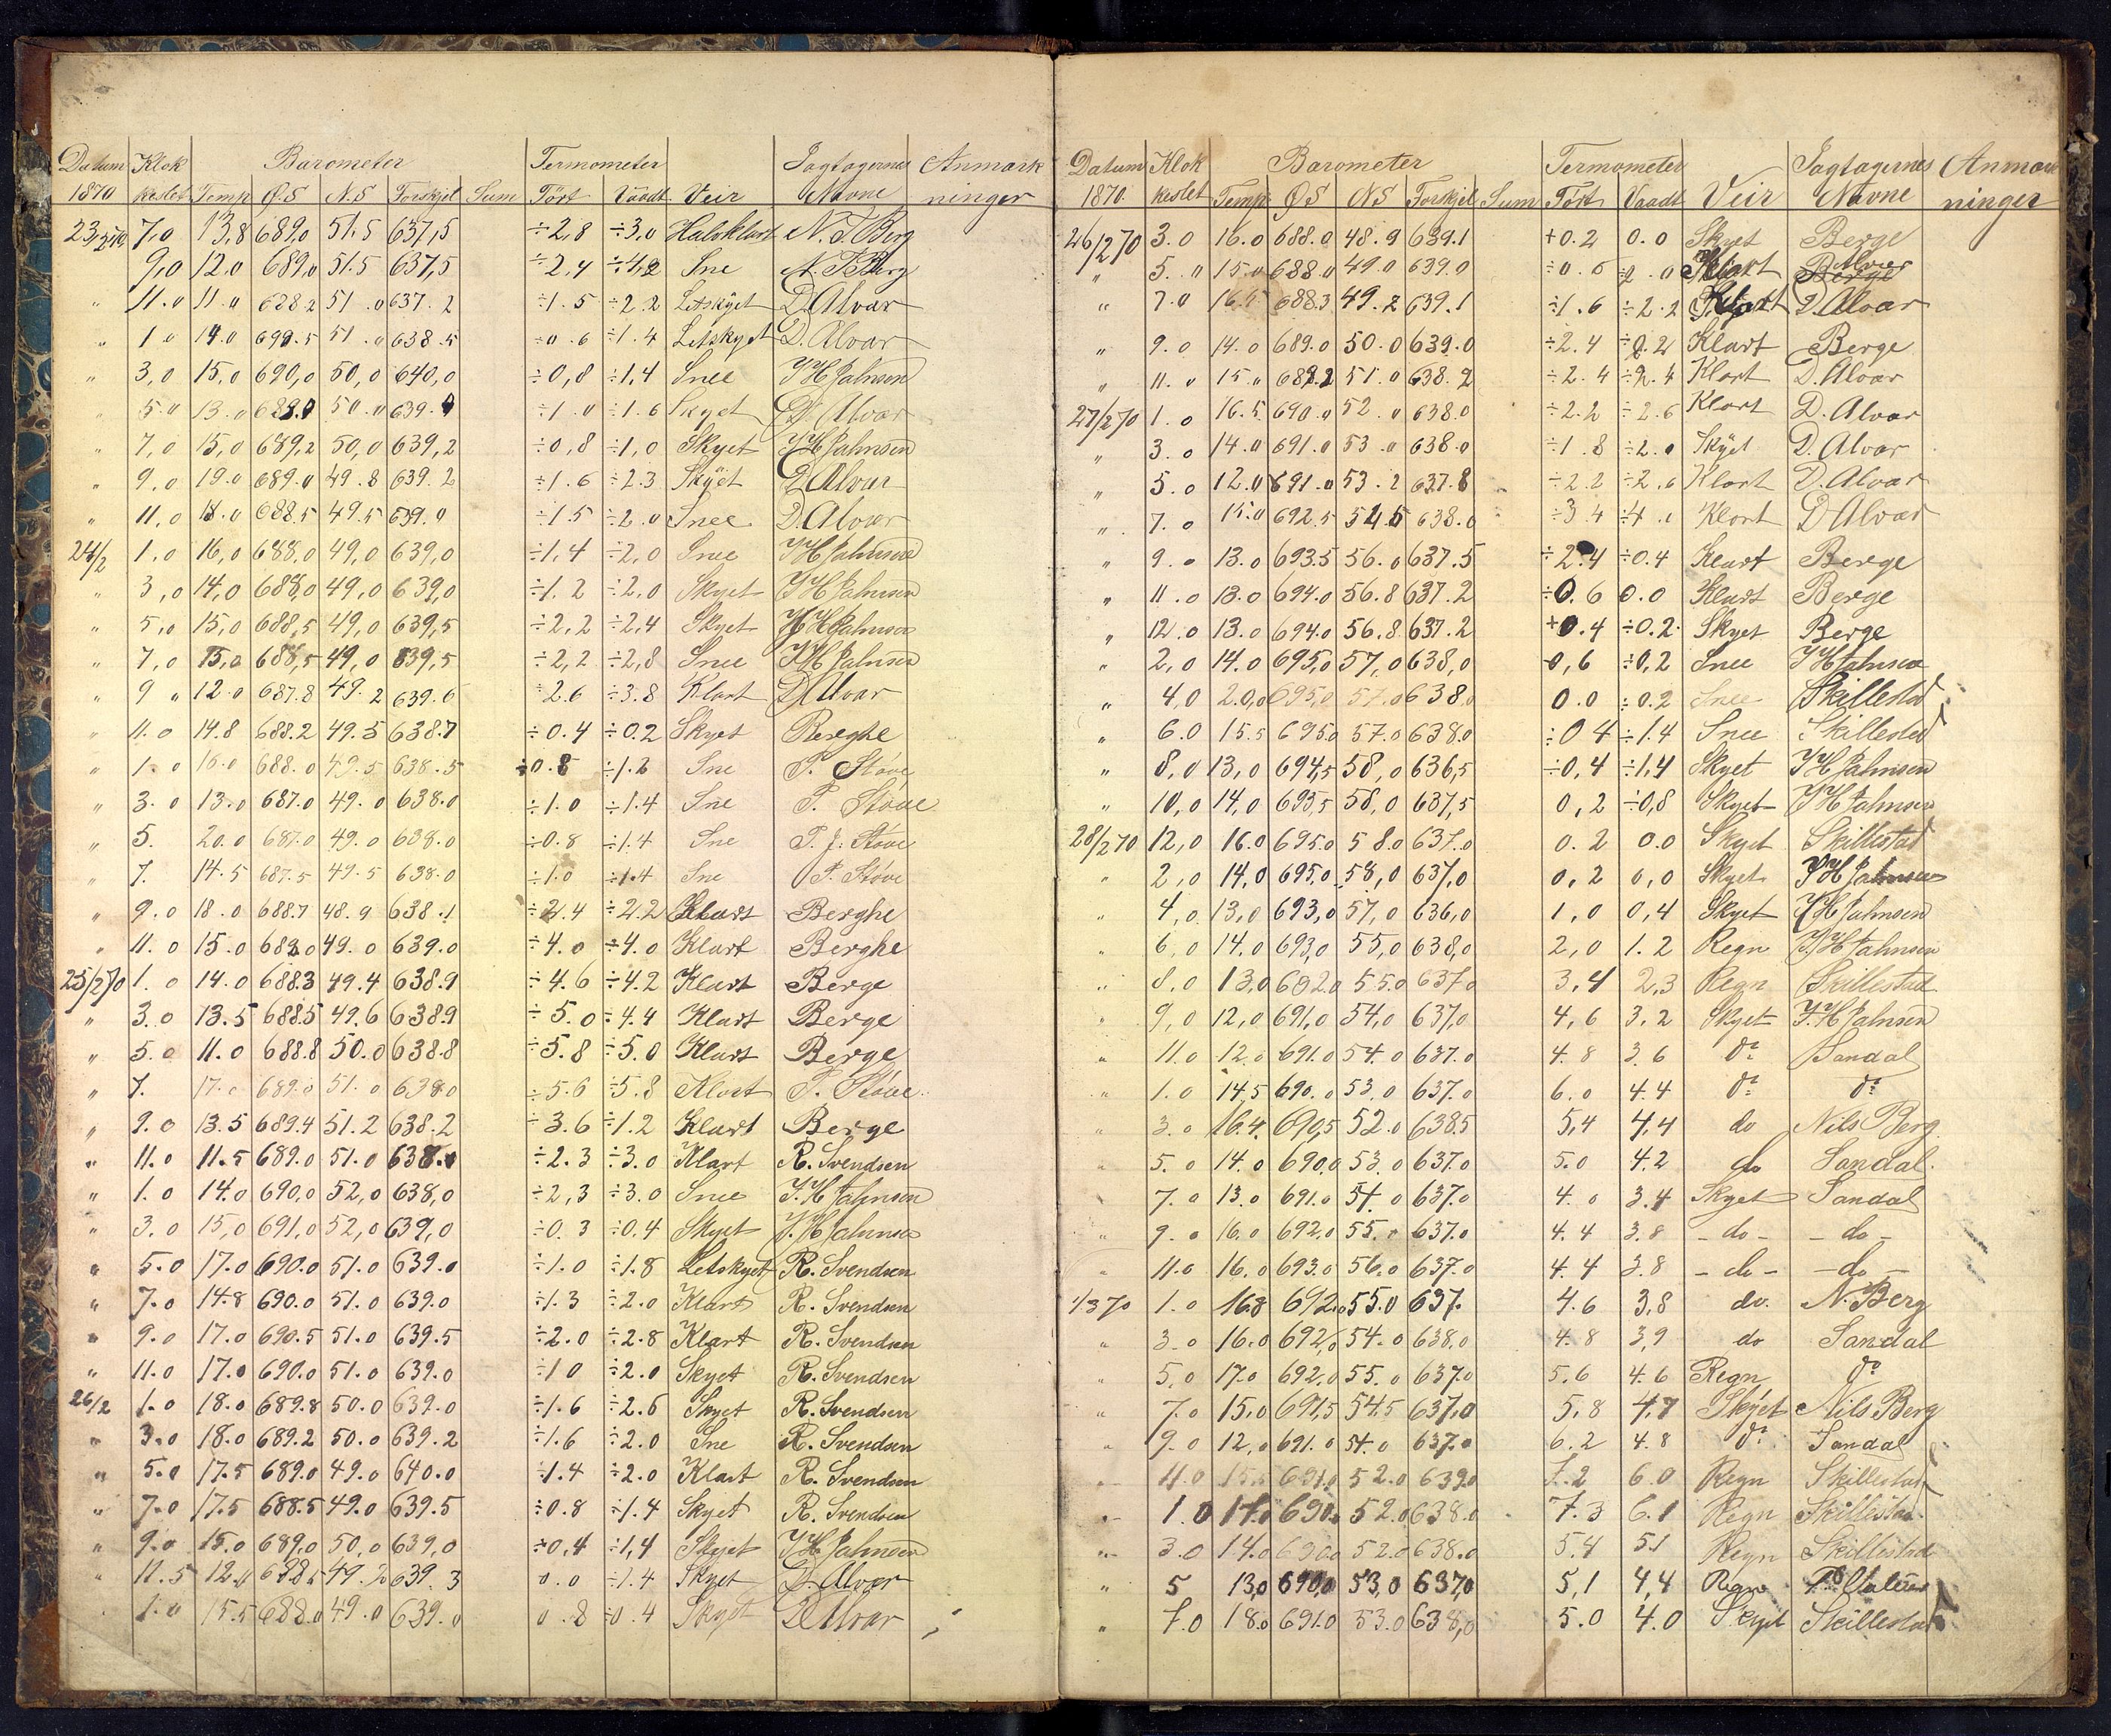 Datum Klok Barometer Termometer Iagtagernes Anmærk
1870 keslet Temp Ø.S N.S Forskjel Sum Tört Vaadt Veir Navne ninger
23/2 70 7,0 13,8 689,0 51,5 637,5 ÷2,8 ÷3,0 Halvklart N. J Berg
9,0 12,0 689,0 51.5 637,5 ÷2,4 Sne N. J Berg
" 11.0 11.0 51.0 637.2 ÷1.5 ÷2.2 Letskyet D. Alvær
" 1.0 14.0 51.0 638.5 ÷0.6 ÷1.4 Letskyet D. Alvær
" 3,0 15,0 690,0 50,0 640,0 ÷0,8 ÷1,4 Snee J H Jahnsen
" 5.0 13.0 50.0 ÷1.0 ÷1.6 Skyet D. Alvær
" 7,0 15,0 689,2 50,0 639,2 ÷0,8 ÷1,0 Skyet J H Jahnsen
" 9,0 19.0 689.0 49.8 639.2 ÷1.6 ÷2.3 Skÿet D. Alvær
" 11,0 18.0 688.5 49.5 639.0 ÷1.5 ÷2.0 Snee D. Alvær
24/2 1,0 16,0 688,0 49,0 639,0 ÷1,4 ÷2,0 Snee J H Jahnsen
" 3,0 14,0 688,0 49,0 639,0 ÷1.2 ÷2,0 Skyet J H Jahnsen
" 5,0 15,0 688,5 49,0 639,5 ÷2,2 ÷2,4 Skyet J H Jahnsen
" 7,0 15,0 688,5 49,0 639,5 ÷2,2 ÷2,8 Snee J H Jahnsen
" 9 " 12.0 687.8 49.2 639.6 ÷2.6 ÷3.8 Klart D. Alvær
" 11.0 14.8 688.2 49.5 638.7 ÷0.4 ÷0.2 Skyet Berghe
" 1.0 16.0 688.0 49.5 638.5 ÷0.8 ÷1.2 Sne P. Støve
" 3.0 13.0 687.0 49.0 638.0 ÷1.0 ÷1.4 Sne P. Støve
" 5. 20.0 687.0 49.0 638.0 ÷0.8 ÷1.4 Sne P. J. Støve
" 7. 14.5 687.5 49.5 638.0 ÷1.0 ÷1.4 Sne P. Støve
" 9.0 18.0 688.7 48.9 638.1 ÷2.4 ÷2.2 Klart Berghe
" 11.0 15.0 49.0 639.0 ÷4.0 ÷4.0 Klart Berghe
25/2 70 1.0 14.0 688.3 49.4 638.9 ÷4.6 ÷4.2 Klart Berge
" 3.0 13.5 688.5 49.6 638.9 ÷5.0 ÷4.4 Klart Berge
" 5.0 11.0 688.8 50.0 638.8 ÷5.8 ÷5.0 Klart Berge
" 7. 17.0 689.0 51.0 638.0 ÷5.6 ÷5.8 Klart P. Støve
" 9.0 13.5 689.4 51.2 638.2 ÷3.6 ÷1.2 Klart Berge
" 11.0 11.5 689.0 51.0 638.0 ÷2.3 ÷3.0 Klart R. Svendsen
" 1.0 14.0 690,0 52,0 638,0 ÷2,3 ÷3.0 Snee J. H Jahnsen
" 3.0 15,0 691,0 52,0 639,0 ÷0.3 ÷0.4 Skyet J. H Jahnsen
" 5.0 17.0 690.0 51.0 639.0 ÷1.0 ÷1.8 Letskyet R. Svendsen
" 7.0 14.8 690.0 51.0 639.0 ÷1.3 ÷2.0 Klart R. Svendsen
" 9.0 17.0 690.5 51.0 639.5 ÷2.0 ÷2.8 Klart R. Svendsen
" 11.0 17.0 690.0 51.0 639.0 ÷1 0 ÷2.0 Skyet R. Svendsen
26/2 1.0 18.0 689.8 50.0 639.0 ÷1.6 ÷2.6 Skyet R. Svendsen
" 3.0 18.0 689.2 50.0 639.2 ÷1.6 ÷2.0 Sne R. Svendsen
" 5.0 17.5 689.0 49.0 640.0 ÷1.4 ÷2.0 Klart R. Svendsen
" 7.0 17.5 688.5 49.0 639.5 ÷0.8 ÷1.4 Skyet R. Svendsen
" 9.0 15.0 689,0 50,0 639,0 ÷0,4 ÷1,4 Skyet J H Jahnsen
" 11.5 12.0 688.5 49.2 639.3 0.0 ÷1.4 Skyet D. Alvær
1.0 15.5 688.0 49.0 639.0 0.8 ÷0.4 Skyet D Alvær
Datum Klok Barometer Termometer Iagtagernes Anmær
1870. keslet Temp ØS NS Forskjel Sum Tört Vaadt Veir Navne ninger
26/2 70 3.0 16.0 688.0 48.9 639.1 +0.2 0.0 Skyet Berge
" 5.0 15.0 688.0 49.0 639.0 ÷0.6 Klart Alvær
" 7.0 16.5 688.3 49.2 639.1 ÷1.6 ÷2.2 Klart D. Alvær
" 9.0 14.0 689.0 50.0 639.0 ÷2.4 Klart Berge
" 11.0 15.0 51.0 638.2 ÷2.4 ÷2.4 Klart D. Alvær
27/2 70 1.0 16.5 690.0 52.0 638.0 ÷2.2 ÷2.6 Klart D. Alvær
" 3.0 14.0 691.0 53.0 638.0 ÷1.8 ÷2.0 Skÿet D. Alvær
" 5.0 12.0 691.0 53.2 637.8 ÷2.2 ÷2.6 Klart D. Alvær
" 7.0 15.0 692.5 54.5 638.0 ÷3.4 Klart D Alvær
" 9.0 13.0 693.5 56.0 637.5 ÷2.4 ÷0.4 Klart Berge
" 11.0 13.0 694.0 56.8 637.2 ÷0.6 0.0 Klart Berge
" 12.0 13.0 694.0 56.8 637.2 +0.4 ÷0.2 Skyet Berge
" 2,0 14.0 695,0 57,0 638,0 0,6 ÷0,2 Snee J H Jahnsen
" 4,0 20,0 695,0 57.0 638.0 0.0 ÷0.2 Snee Skillestad
" 6.0 15.5 695.0 57.0 638.0 ÷0 4 ÷1.4 Snee Skillestad
" 8,0 13,0 694,5 58,0 636,5 ÷0,4 ÷1,4 Skyet J H Jahnsen
" 10,0 14,0 695,5 58,0 637,5 0,2 ÷0,8 Skyet J H Jahnsen
28/2 70 12,0 16.0 695.0 58.0 637.0 0.2 0.0 Skyet Skillestad
" 2,0 14,0 695,0 58,0 637,0 0,2 0,0 Skyet J H Jahnsen
" 4,0 13,0 693,0 57,0 636,0 1,0 0,4 Skyet J H Jahnsen
" 6,0 14,0 693,0 55,0 638,0 2,0 1.2 Regn J. H Jahnsen
" 8,0 13,0 692.0 55.0 637.0 3,4 2,3 Regn Skillestad
" 9,0 12,0 691,0 54,0 637,0 4,6 3,2 Skyet J. H Jahnsen
" 11.0 12.0 691.0 54.0 637.0 4.8 3.6 do Sandal
" 1.0 14,5 690.0 53.0 637.0 6.0 4.4 do do
" 3.0 16.4 690,5 52.0 638.5 5,4 4,4 do Nils Berg
" 5.0 14.0 690.0 53.0 637.0 5.0 4.2 do Sandal.
7.0 13.0 691.0 54.0 637.0 4.0 3.4 Skyet Sandal
" 9.0 16.0 692.0 55.0 637.0 4.4 3.8 - do - - do -
" 11.0 16.0 693.0 56.0 637.0 4.4 3.8 - do - - do -
1/3 70 1.0 16.8 692.0 55.0 637. 4.6 3,8 do. N. Berg
" 3.0 16.0 692,0 54.0 638.0 4.8 3,9 do Sandal
" 5.0 17.0 692.0 55.0 637.0 5.6 4.6 Regn do
" 7.0 15,0 691,5 54.5 637,0 5,8 4,7 Skýet Nils Berg
" 9.0 12.0 691.0 54.0 637.0 6.2 4.8 do Sandal
" 11.0 15.5 691.0 52.0 639.0 7.2 6.0 Regn Skillestad
" 1.0 17.0 690. 52.0 638.0 7.3 6.1 Regn Skillestad
" 3.0 14.0 690.0 52.0 638.0 5.4 5.1 Regn Skillestad
" 5 13,0 690,0 53,0 637,0 5,1 4,4 Regn
" 7.0 18.0 691.0 53.0 638,0 5.0 4.0 Skyet Skillestad